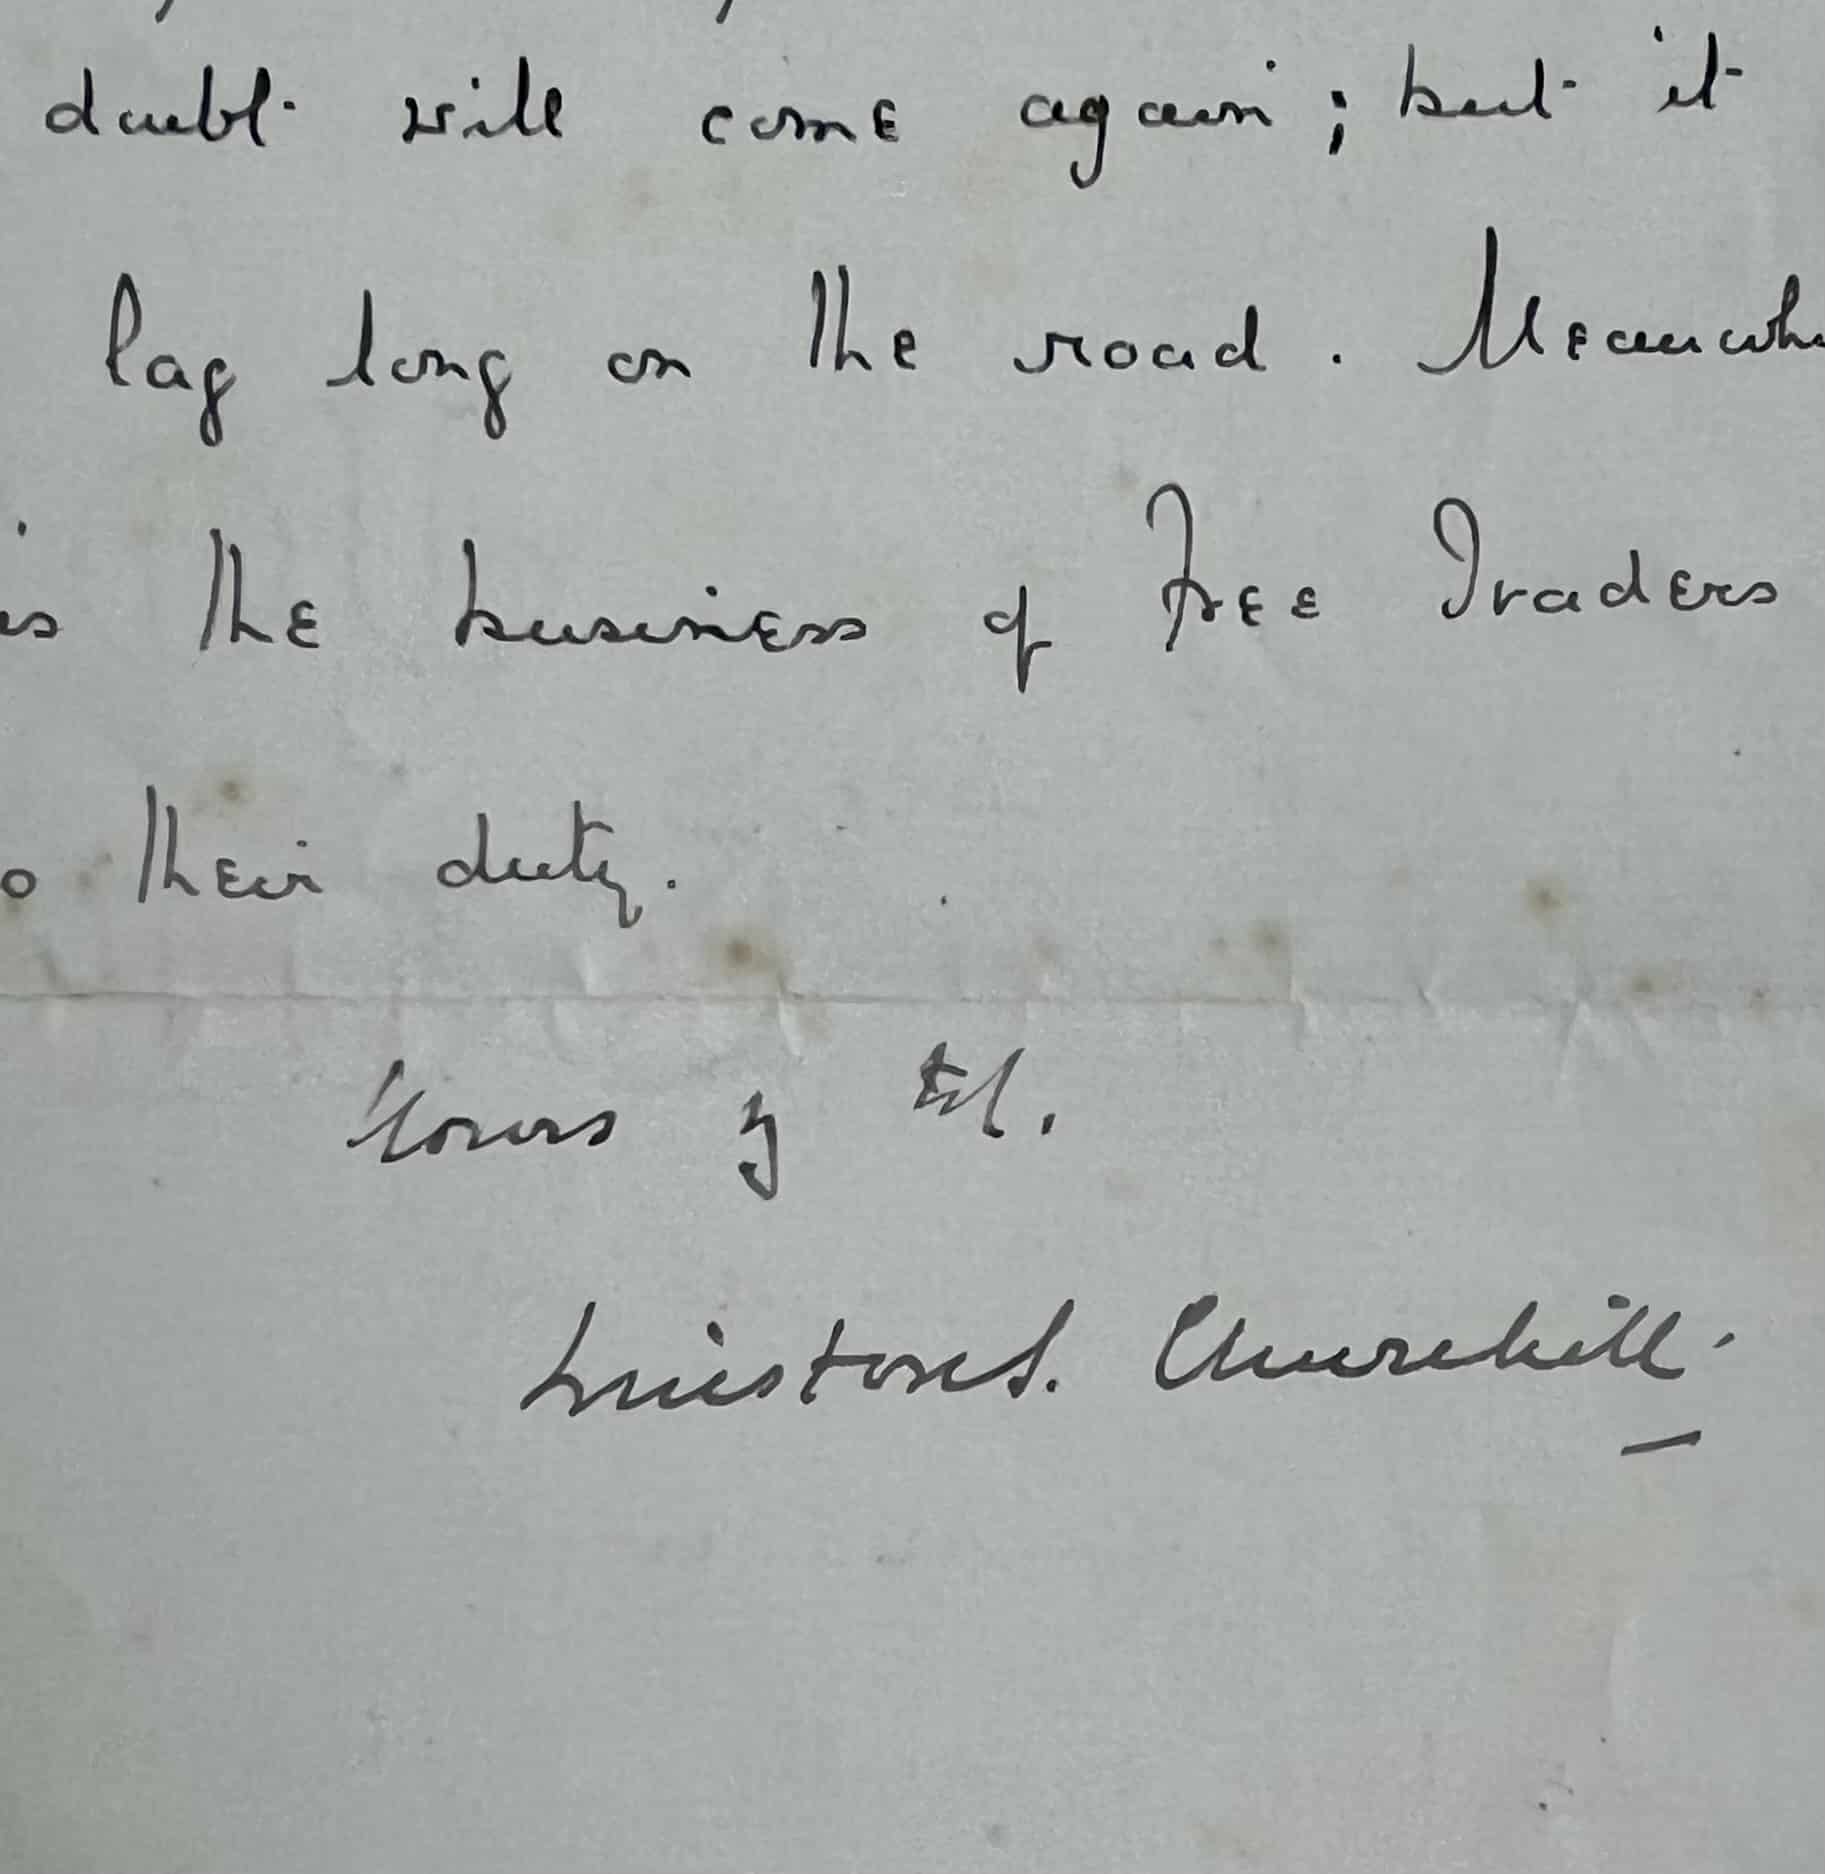 doubt will come again; but it
lag long on the road. Meanwh
is the business of Free Traders
o their duty.
Yours
Winston S. Churchill